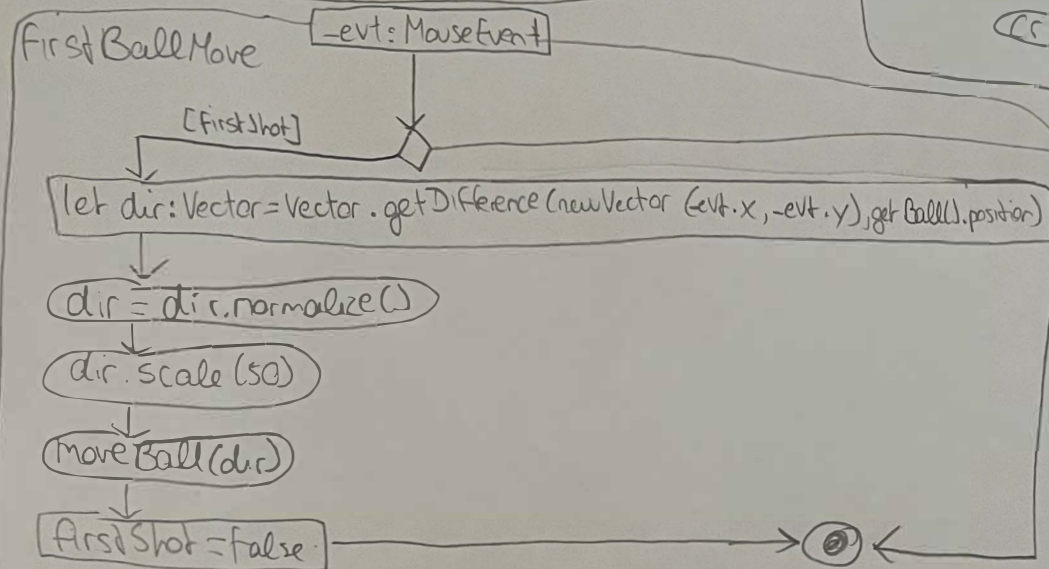 firstBallMove
_evt: MouseEvent
[firstShot]
let dir: Vector = Vector.getDifference(new Vector (_evt.x, _evt.y), getBall().position)
dir = dir.normalize()
dir.scale(50)
moveBall(dir)
firstShot = false